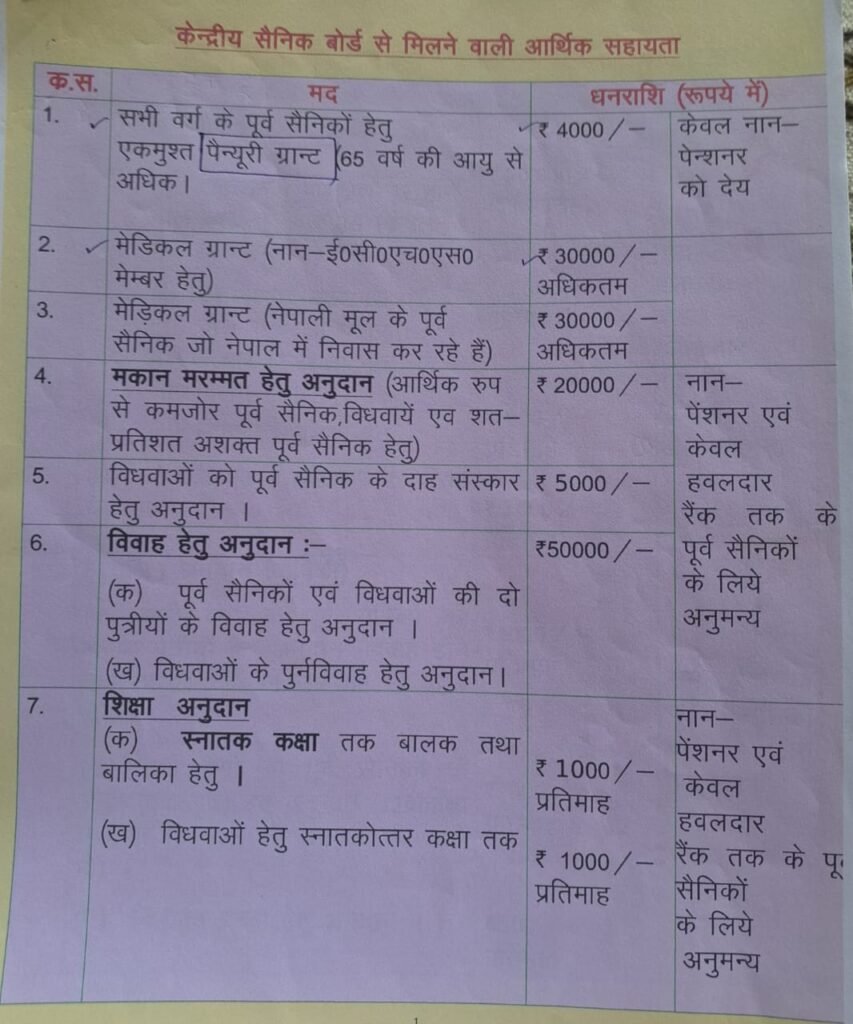 केन्द्रीय सैनिक बोर्ड से मिलने वाली आर्थिक सहायता
क.स. मद धनराशि (रूपये में)
1. सभी वर्ग के पूर्व सैनिकों हेतु
एकमुश्त पैन्यूरी ग्रान्ट (65 वर्ष की आयु से
अधिक।
₹ 4000/–
केवल नान–
पेन्शनर
को देय
2. मेडिकल ग्रान्ट (नान–ई0सी0एच0एस0
मेम्बर हेतु)
₹ 30000/–
अधिकतम
3. मेड़िकल ग्रान्ट (नेपाली मूल के पूर्व
सैनिक जो नेपाल में निवास कर रहे हैं)
₹ 30000/–
अधिकतम
4. मकान मरम्मत हेतु अनुदान (आर्थिक रुप
से कमजोर पूर्व सैनिक,विधवायें एव शत–
प्रतिशत अशक्त पूर्व सैनिक हेतु)
₹ 20000/–
5. विधवाओं को पूर्व सैनिक के दाह संस्कार
हेतु अनुदान ।
₹ 5000/–
6. विवाह हेतु अनुदान :–
(क) पूर्व सैनिकों एवं विधवाओं की दो
पुत्रीयों के विवाह हेतु अनुदान ।
(ख) विधवाओं के पुर्नविवाह हेतु अनुदान।
₹50000/–
नान–
पेंशनर एवं
केवल
हवलदार
रैंक तक के
पूर्व सैनिकों
के लिये
अनुमन्य
7. शिक्षा अनुदान
(क) स्नातक कक्षा तक बालक तथा
बालिका हेतु ।
₹ 1000/–
प्रतिमाह
(ख) विधवाओं हेतु स्नातकोत्तर कक्षा तक
₹ 1000/–
प्रतिमाह
नान–
पेंशनर एवं
केवल
हवलदार
रैंक तक के
सैनिकों
के लिये
अनुमन्य